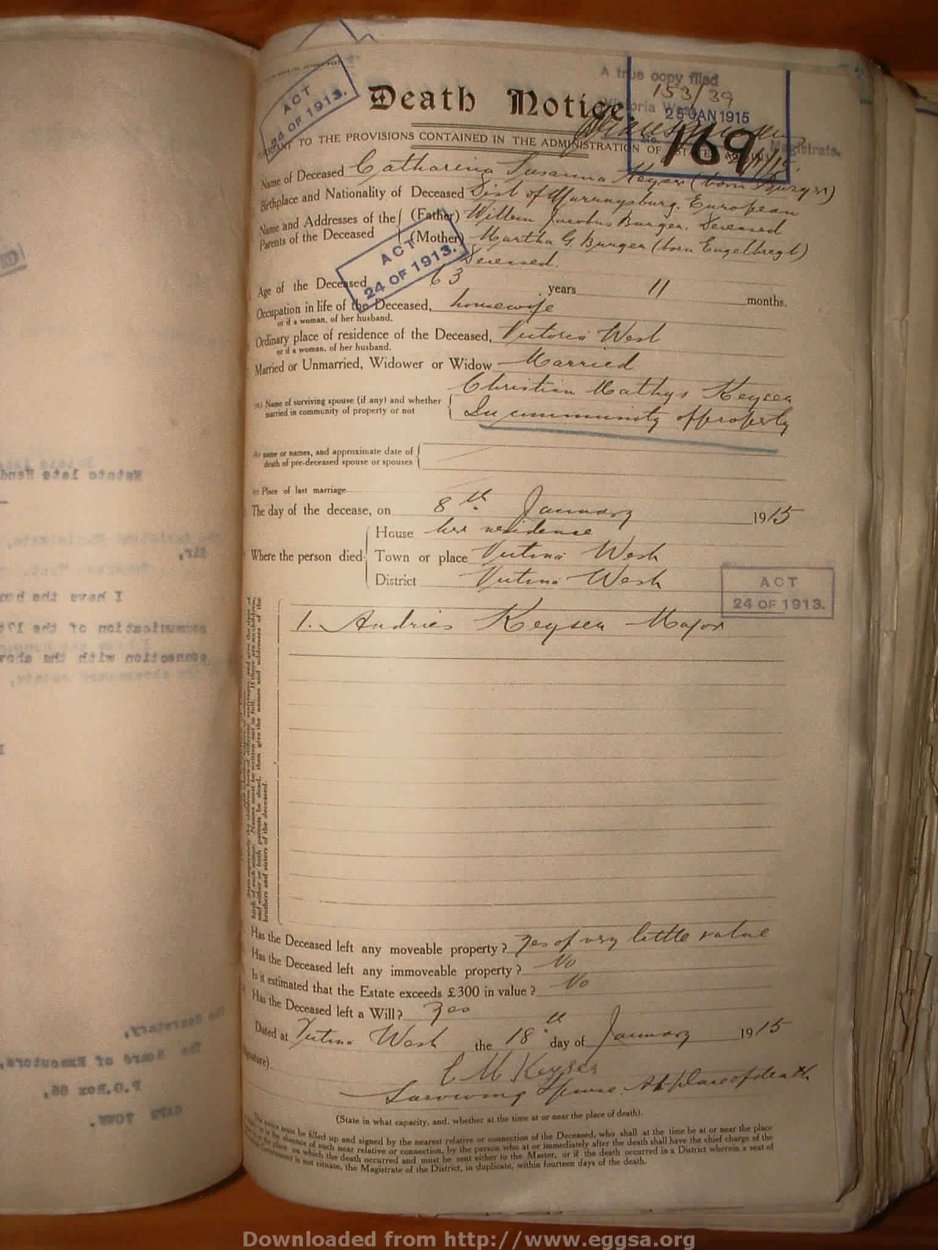 ACT
24 OF 1913.
Death Notice.
A true copy filed
153/39
Victoria West
25 JAN 1915
169
Magistrate.
PURSUANT TO THE PROVISIONS CONTAINED IN THE ADMINISTRATION OF ESTATES
Name of Deceased Catharina Susanna Keyser (born Burger)
Birthplace and Nationality of Deceased Dist of Murraysburg. European
Name and Addresses of the Parents of the Deceased (Father) Willem Jacobus Burger. Deceased
(Mother) Martha G. Burger (born Engelbregt)
Deceased.
ACT
24 OF 1913.
Age of the Deceased 63 years 11 months.
Occupation in life of the Deceased, housewife
or if a woman, of her husband.
Ordinary place of residence of the Deceased, Victoria West
or if a woman, of her husband.
Married or Unmarried, Widower or Widow Married
(a) Name of surviving spouse (if any) and whether married in community of property or not
Christian Mathys Keyser
In community of property
(b) name or names, and approximate date of death of pre-deceased spouse or spouses
(c) Place of last marriage
The day of the decease, on 8th January 1915
Where the person died: House her residence
Town or place Victoria West
District Victoria West
ACT
24 OF 1913.
1. Andries Keyser Major
Has the Deceased left any moveable property? Yes of very little value
Has the Deceased left any immoveable property? No
Is it estimated that the Estate exceeds £300 in value? No
Has the Deceased left a Will? Yes
Dated at Victoria West the 18th day of January 1915
(Signature) C M Keyser
Surviving Spouse. At place of death
(State in what capacity, and, whether at the time at or near the place of death).
notice must be filled up and signed by the nearest relative or connection of the Deceased, who shall at the time be at or near the place
in the absence of such near relative or connection, by the person who at or immediately after the death shall have the chief charge of the
place in which the death occurred and must be sent either to the Master, or if the death occurred in a District wherein a seat of
Government is not situate, the Magistrate of the District, in duplicate, within fourteen days of the death.
Downloaded from http://www.eggsa.org